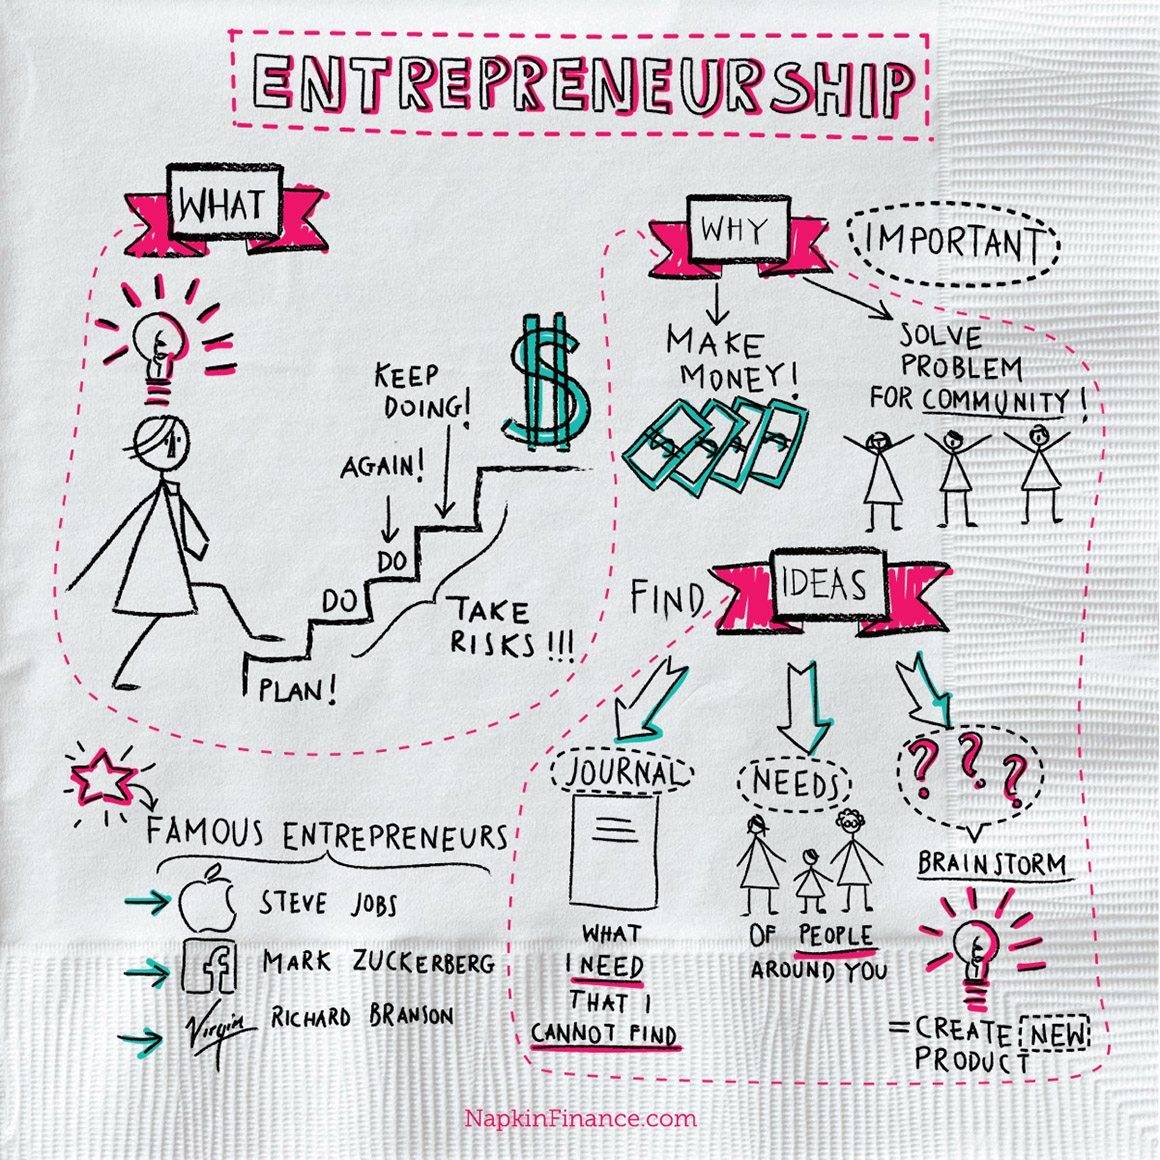 ENTREPRENEURSHIP
WHAT
KEEP
DOING!
AGAIN!
DO
DO
PLAN!
TAKE
RISKS!!!
$
WHY
IMPORTANT
MAKE
MONEY!
$ $ $ $
SOLVE
PROBLEM
FOR COMMUNITY!
FIND IDEAS
JOURNAL
WHAT
I NEED
THAT I
CANNOT FIND
NEEDS
OF PEOPLE
AROUND YOU
? ? ?
BRAINSTORM
= CREATE NEW
PRODUCT
FAMOUS ENTREPRENEURS
STEVE JOBS
f MARK ZUCKERBERG
Virgin RICHARD BRANSON
NapkinFinance.com